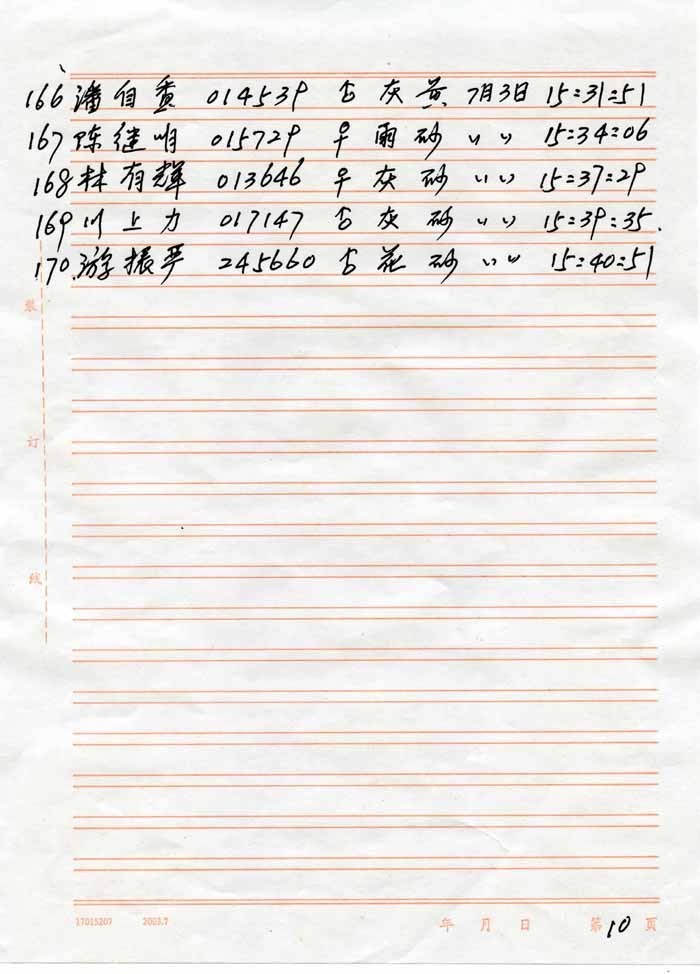 166 潘自重 014539 ♂ 灰 黄 7月3日 15:31:51
167 陈继明 015729 ♀ 雨 砂 〃 〃 15:34:06
168 林有辉 013646 ♀ 灰 砂 〃 〃 15:37:29
169 川上力 017147 ♂ 灰 砂 〃 〃 15:39:35.
170. 游振平 245660 ♂ 花 砂 〃 〃 15:40:51
装
订
线
17015207 2003.7 年 月 日 第10页